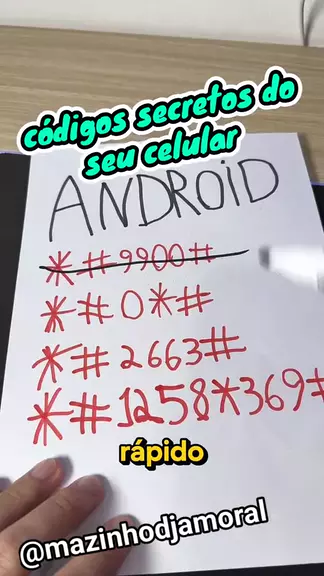 códigos secretos do
seu celular
ANDROID
*#9900#
*#0*#
*#2663#
*#1258*369#
rápido
@mazinhodjamoral